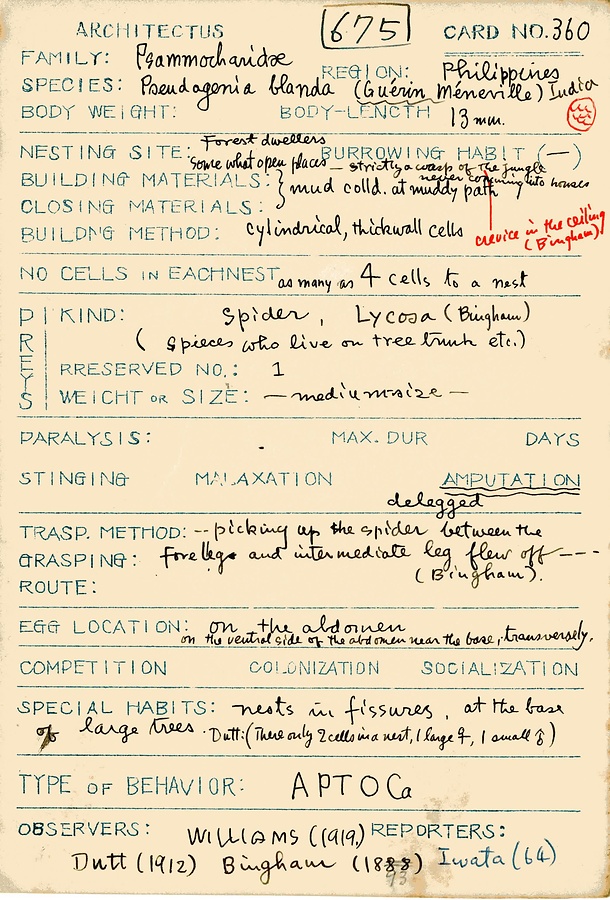 ARCHITECTUS 675 CARD NO. 360
FAMILY: Psammocharidæ
REGION: Philippines
SPECIES: Pseudagenia blanda (Guérin Méneville) India
BODY WEIGHT: BODY-LENGTH 13 mm.
Forest dwellers
NESTING SITE: somewhat open places — strictly a wasp of the jungle BURROWING HABIT (—)
never coming into houses
BUILDING MATERIALS: } mud colld. at muddy path
CLOSING MATERIALS:
crevice in the ceiling
(Bingham)
BUILDNG METHOD: cylindrical, thickwall cells
NO CELLS IN EACHNEST as many as 4 cells to a nest
PREYS
KIND: Spider, Lycosa (Bingham)
( spieces who live on tree trunk etc.)
RRESERVED NO.: 1
WEICHT OR SIZE: — mediumsize —
PARALYSIS: MAX. DUR DAYS
STINGING MALAXATION AMPUTATION
delegged
TRASP. METHOD: -- picking up the spider between the
GRASPING: forelegs and intermediate leg flew off ----
ROUTE: (Bingham).
EGG LOCATION: on the abdomen
on the ventral side of the abdomen near the base, transversely.
COMPETITION COLONIZATION SOCIALIZATION
SPECIAL HABITS: nests in fissures, at the base
of large trees. Dutt: (There only 2 cells in a nest, 1 large ♀, 1 small ♂)
TYPE OF BEHAVIOR: APTOCa
OBSERVERS: WILLIAMS (1919,) REPORTERS:
Dutt (1912) Bingham (1888) Iwata (64)
93